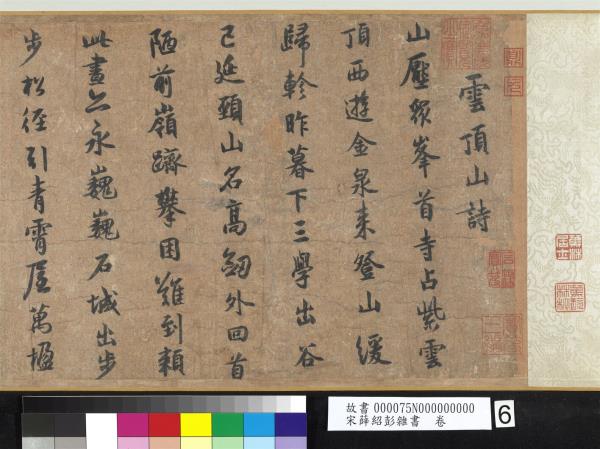 雲頂山詩
山壓衆峯首寺占紫雲
頂西遊金泉来登山緩
歸軫昨暮下三學出谷
已延頸山名高劒外回首
陋前嶺躋攀困難到賴
此晝亦永巍巍石城出步
步松徑引青霄屋萬楹
故書 000075N000000000
宋薛紹彭雜書 卷
6